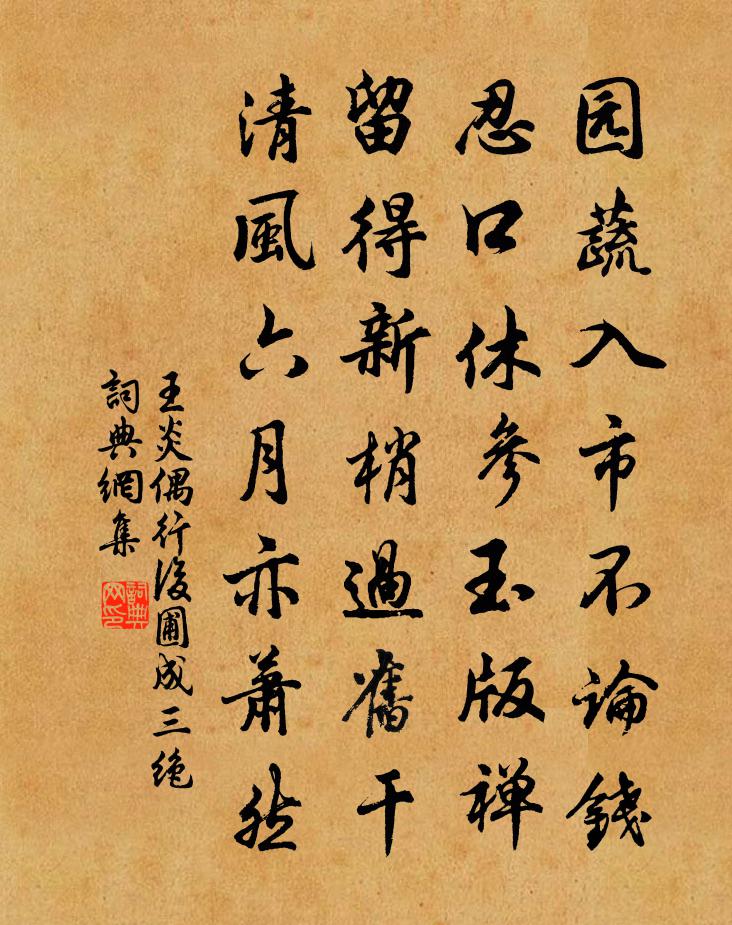 园蔬入市不论錢
忍口休參玉版禅
留得新梢過舊干
清風六月亦蕭然
王炎偶行後圃成三绝
詞典網集
詞典网印